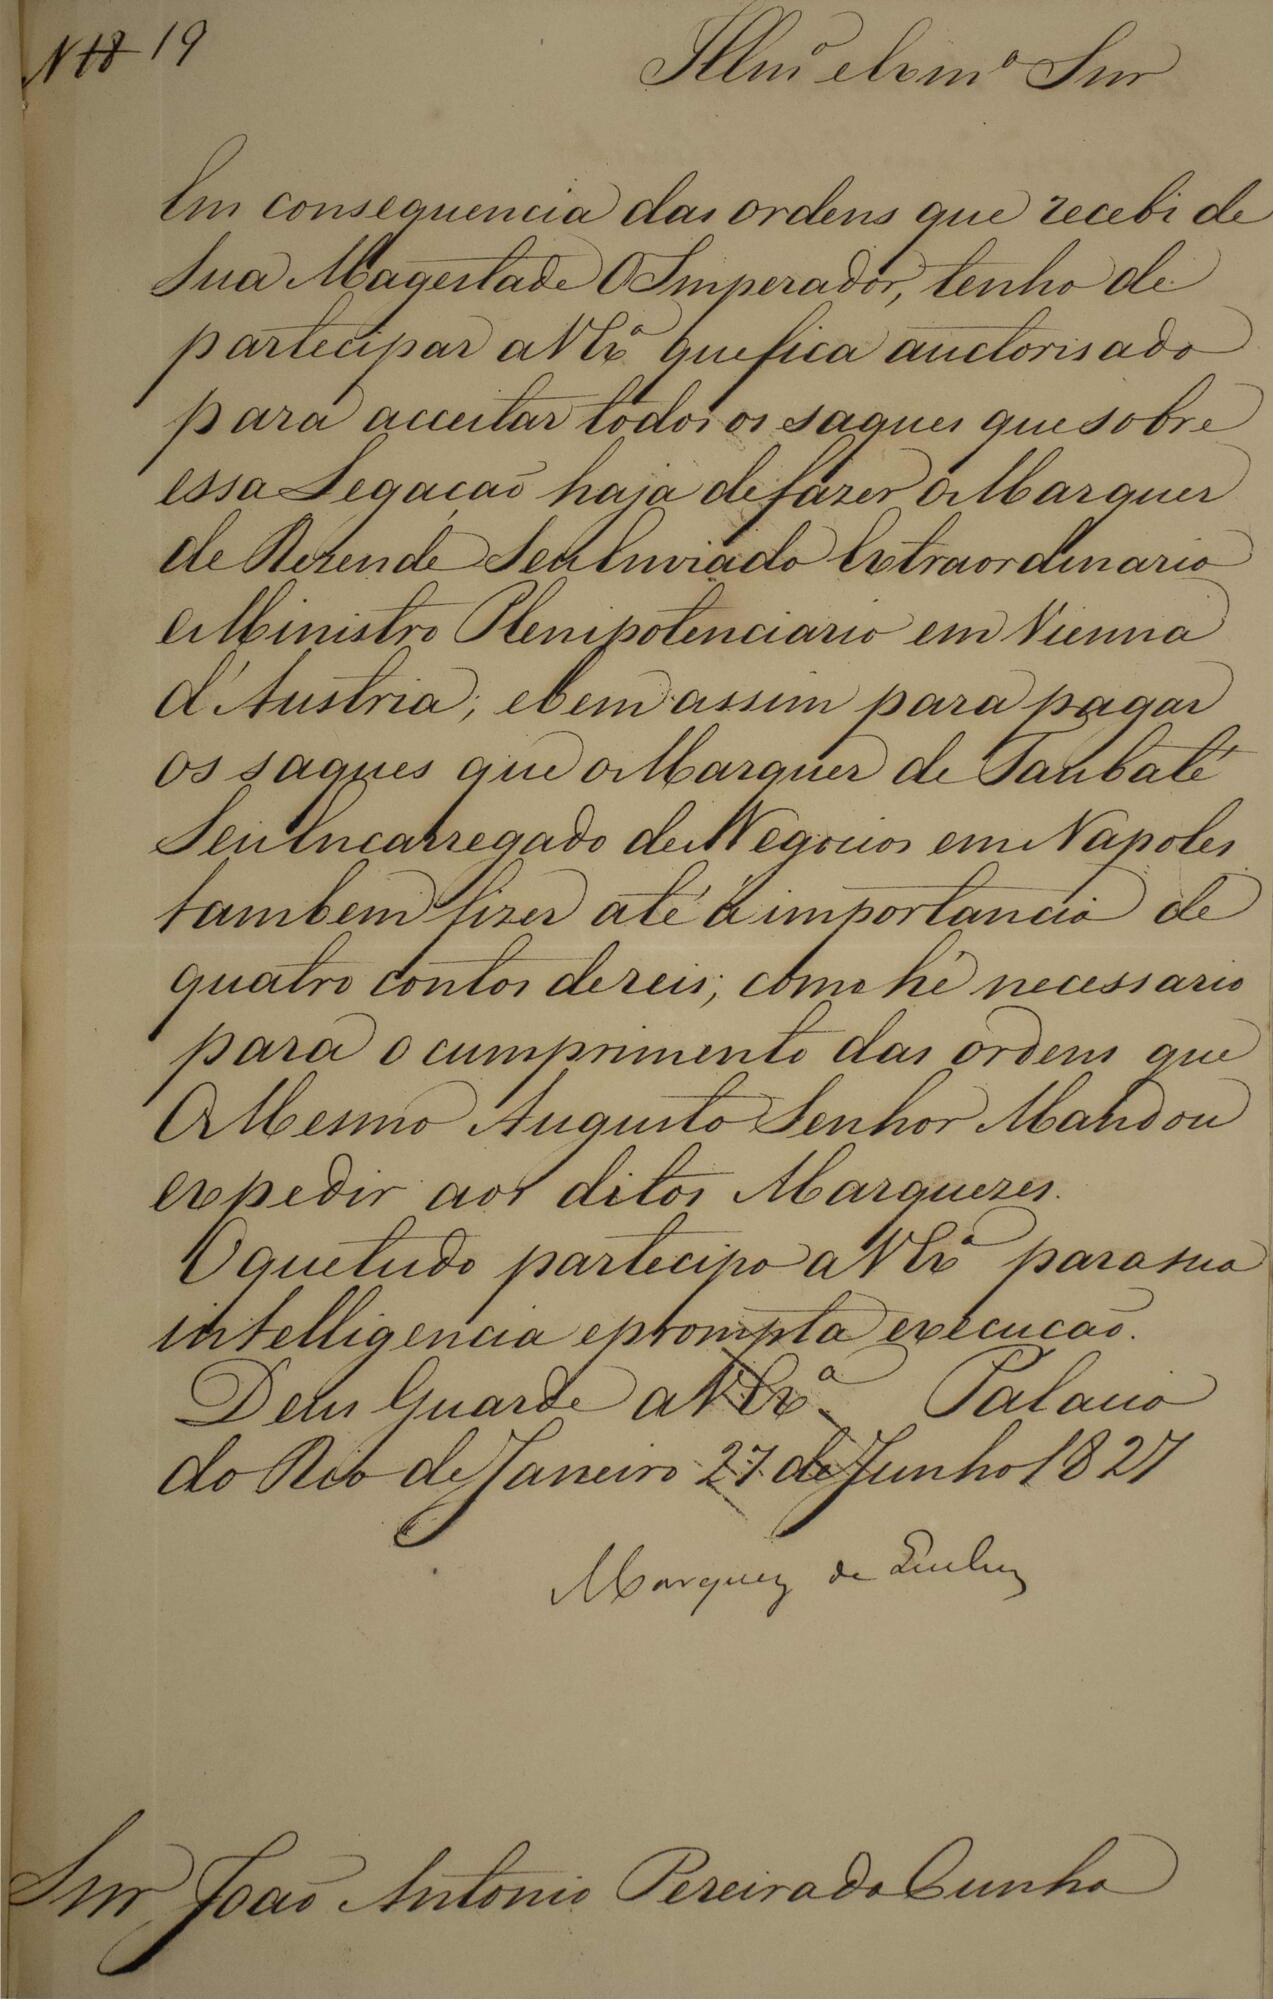 N 18 19
Illmº e Exmº Snr
Em consequencia das ordens que recebi de
Sua Magestade O Imperador, tenho de
partecipar a V Exª que fica auctorisado
para acceitar todos os saques que sobre
essa Legação haja de fazer o Marquez
de Rezende Seu Enviado Extraordinario
e Ministro Plenipotenciario em Vienna
d'Austria; e bem assim para pagar
os saques que o Marquez de Taubaté
Seu Encarregado de Negocios em Napoles
tambem fizer até á importancia de
quatro contos de reis; como hé necessario
para o cumprimento das ordens que
O Mesmo Augusto Senhor Mandou
expedir aos ditos Marquezes.
O que tudo partecipo a V Exª para sua
intelligencia e prompta execucão.
Deus Guarde a V Exª. Palacio
do Rio de Janeiro 27 de Junho 1827
Marquez de Queluz
Snr João Antonio Pereira da Cunha